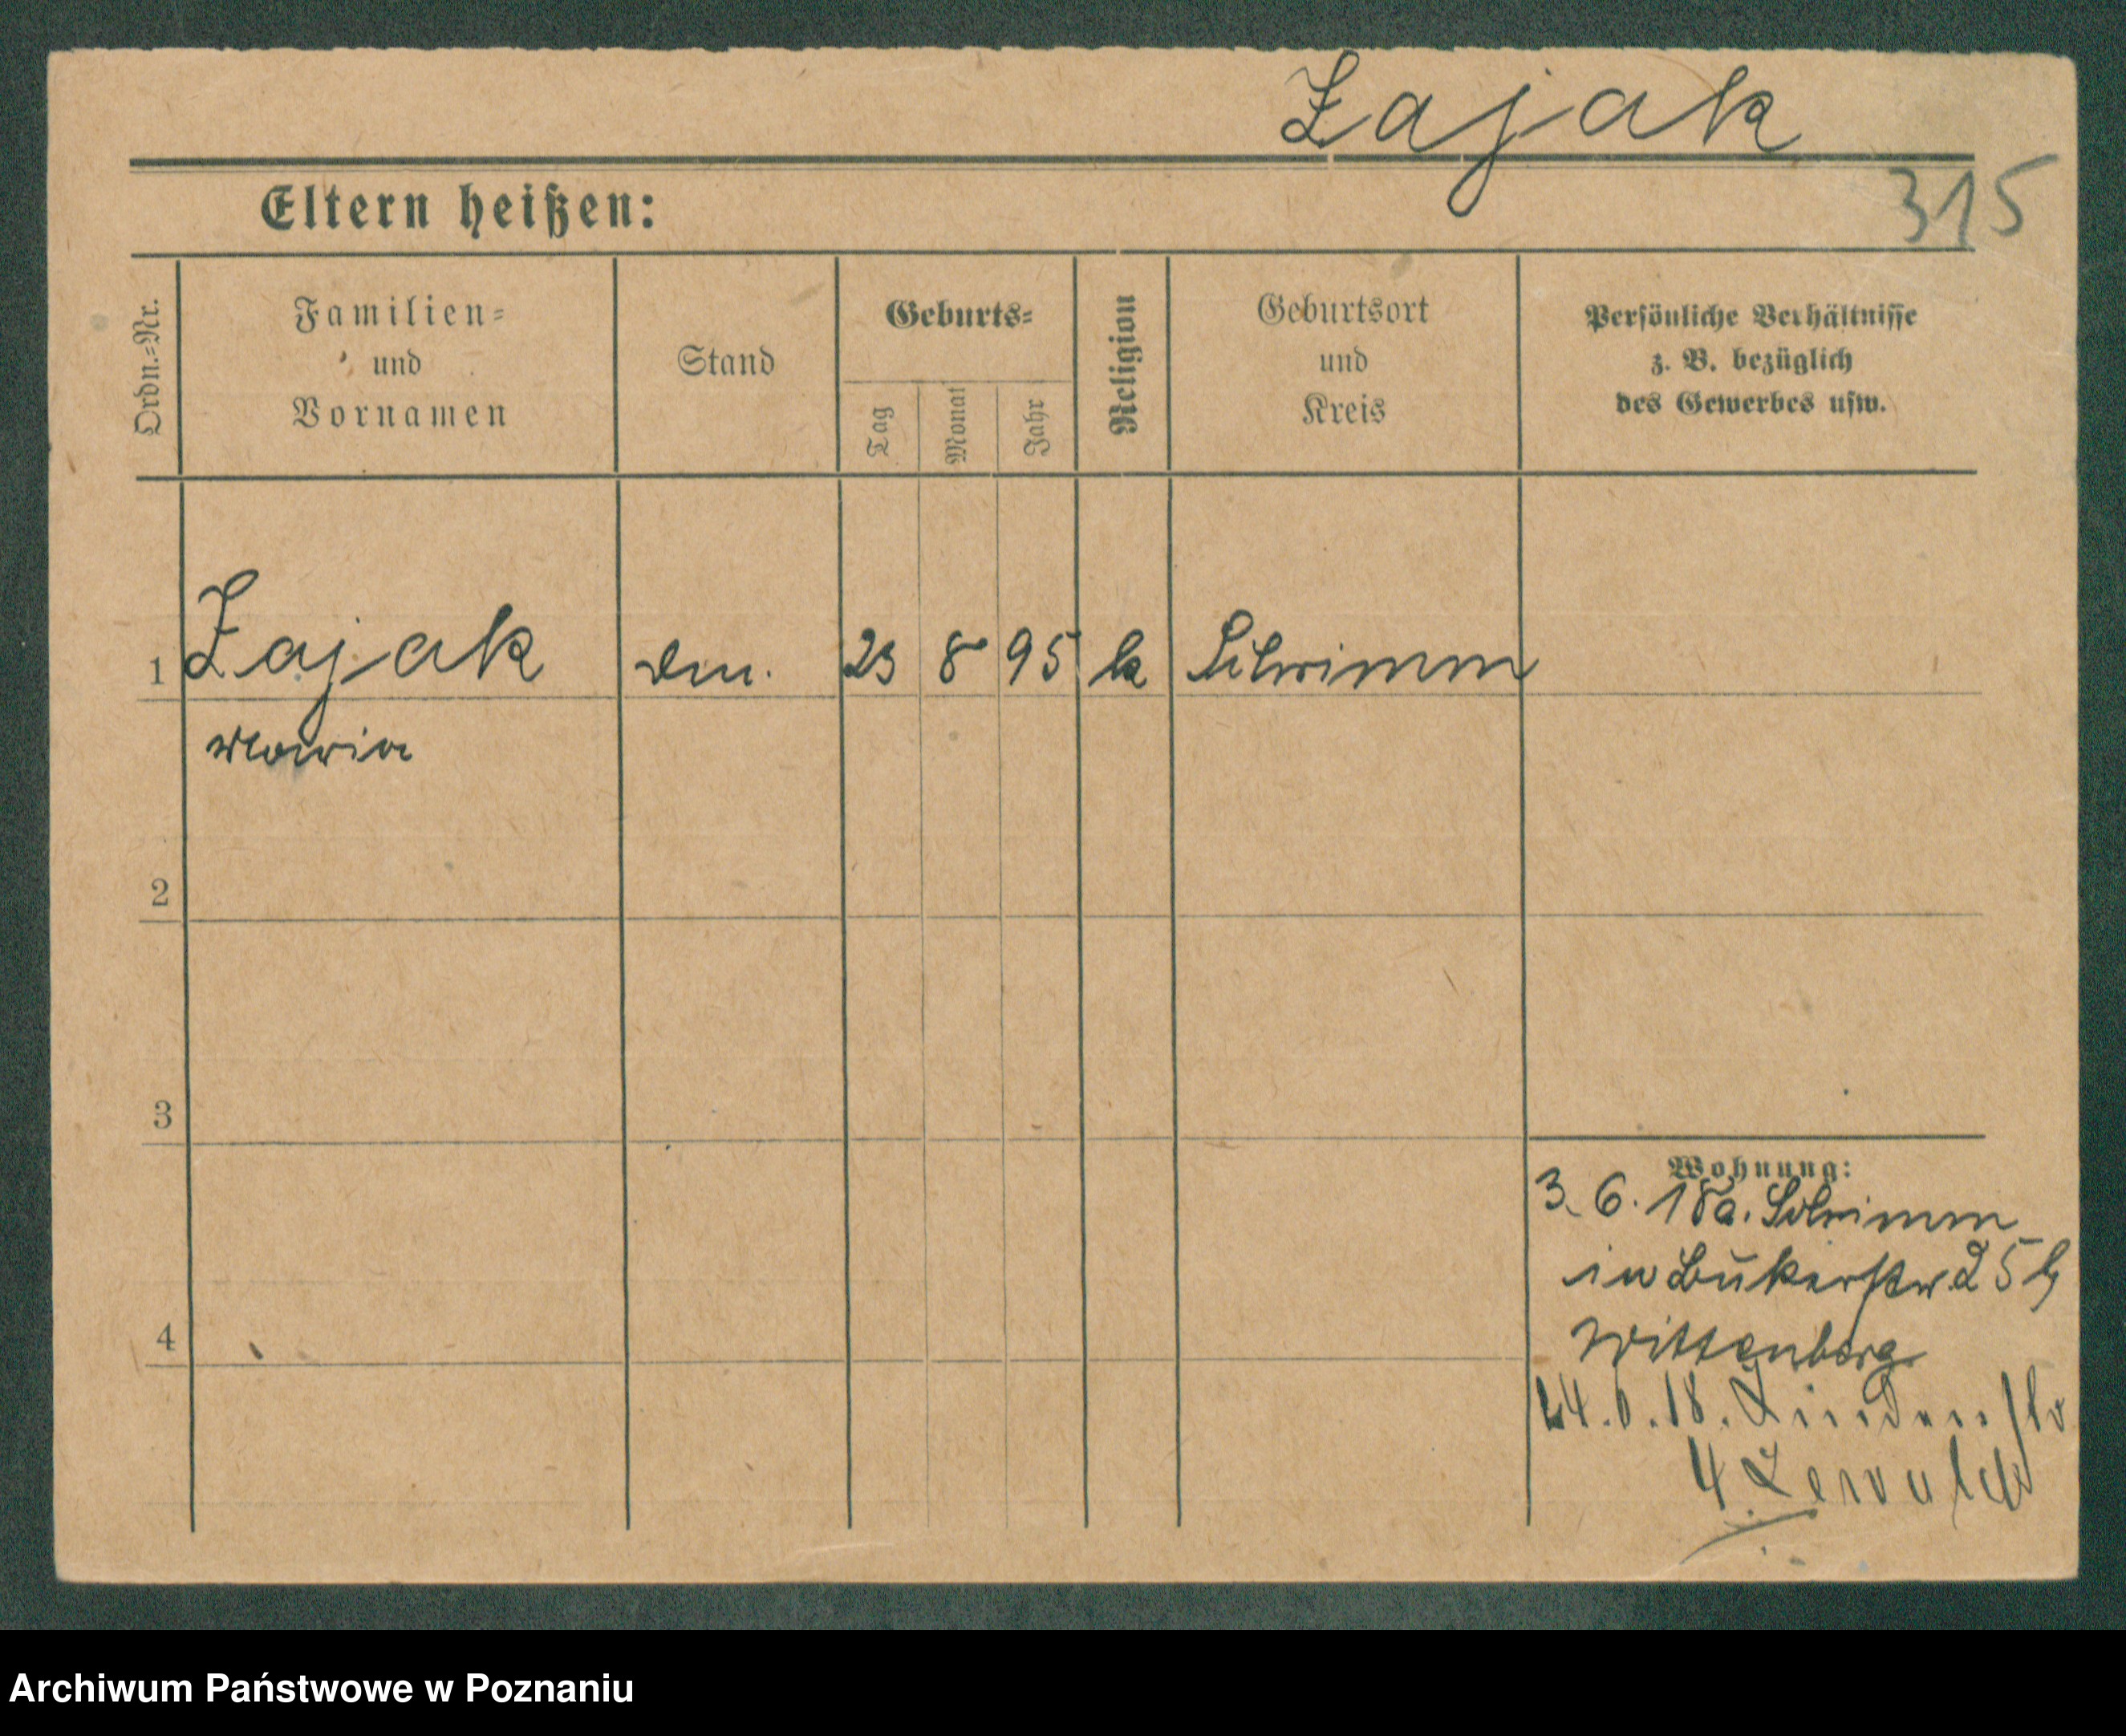 Zajak
315
Eltern heißen:
Ordn.=Nr.
Familien=
und
Vornamen
Stand
Geburts=
Tag
Monat
Jahr
Religion
Geburtsort
und
Kreis
Persönliche Verhältnisse
z. B. bezüglich
des Gewerbes usw.
1 Zajak 23 8 95 k Schrimm
Maria
2
3
4
Wohnung:
3. 6. 18 a. Schrimm
in Bukerstr 25 b
Wittenberg
24. 6. 18. Lindenstr
4
Archiwum Państwowe w Poznaniu